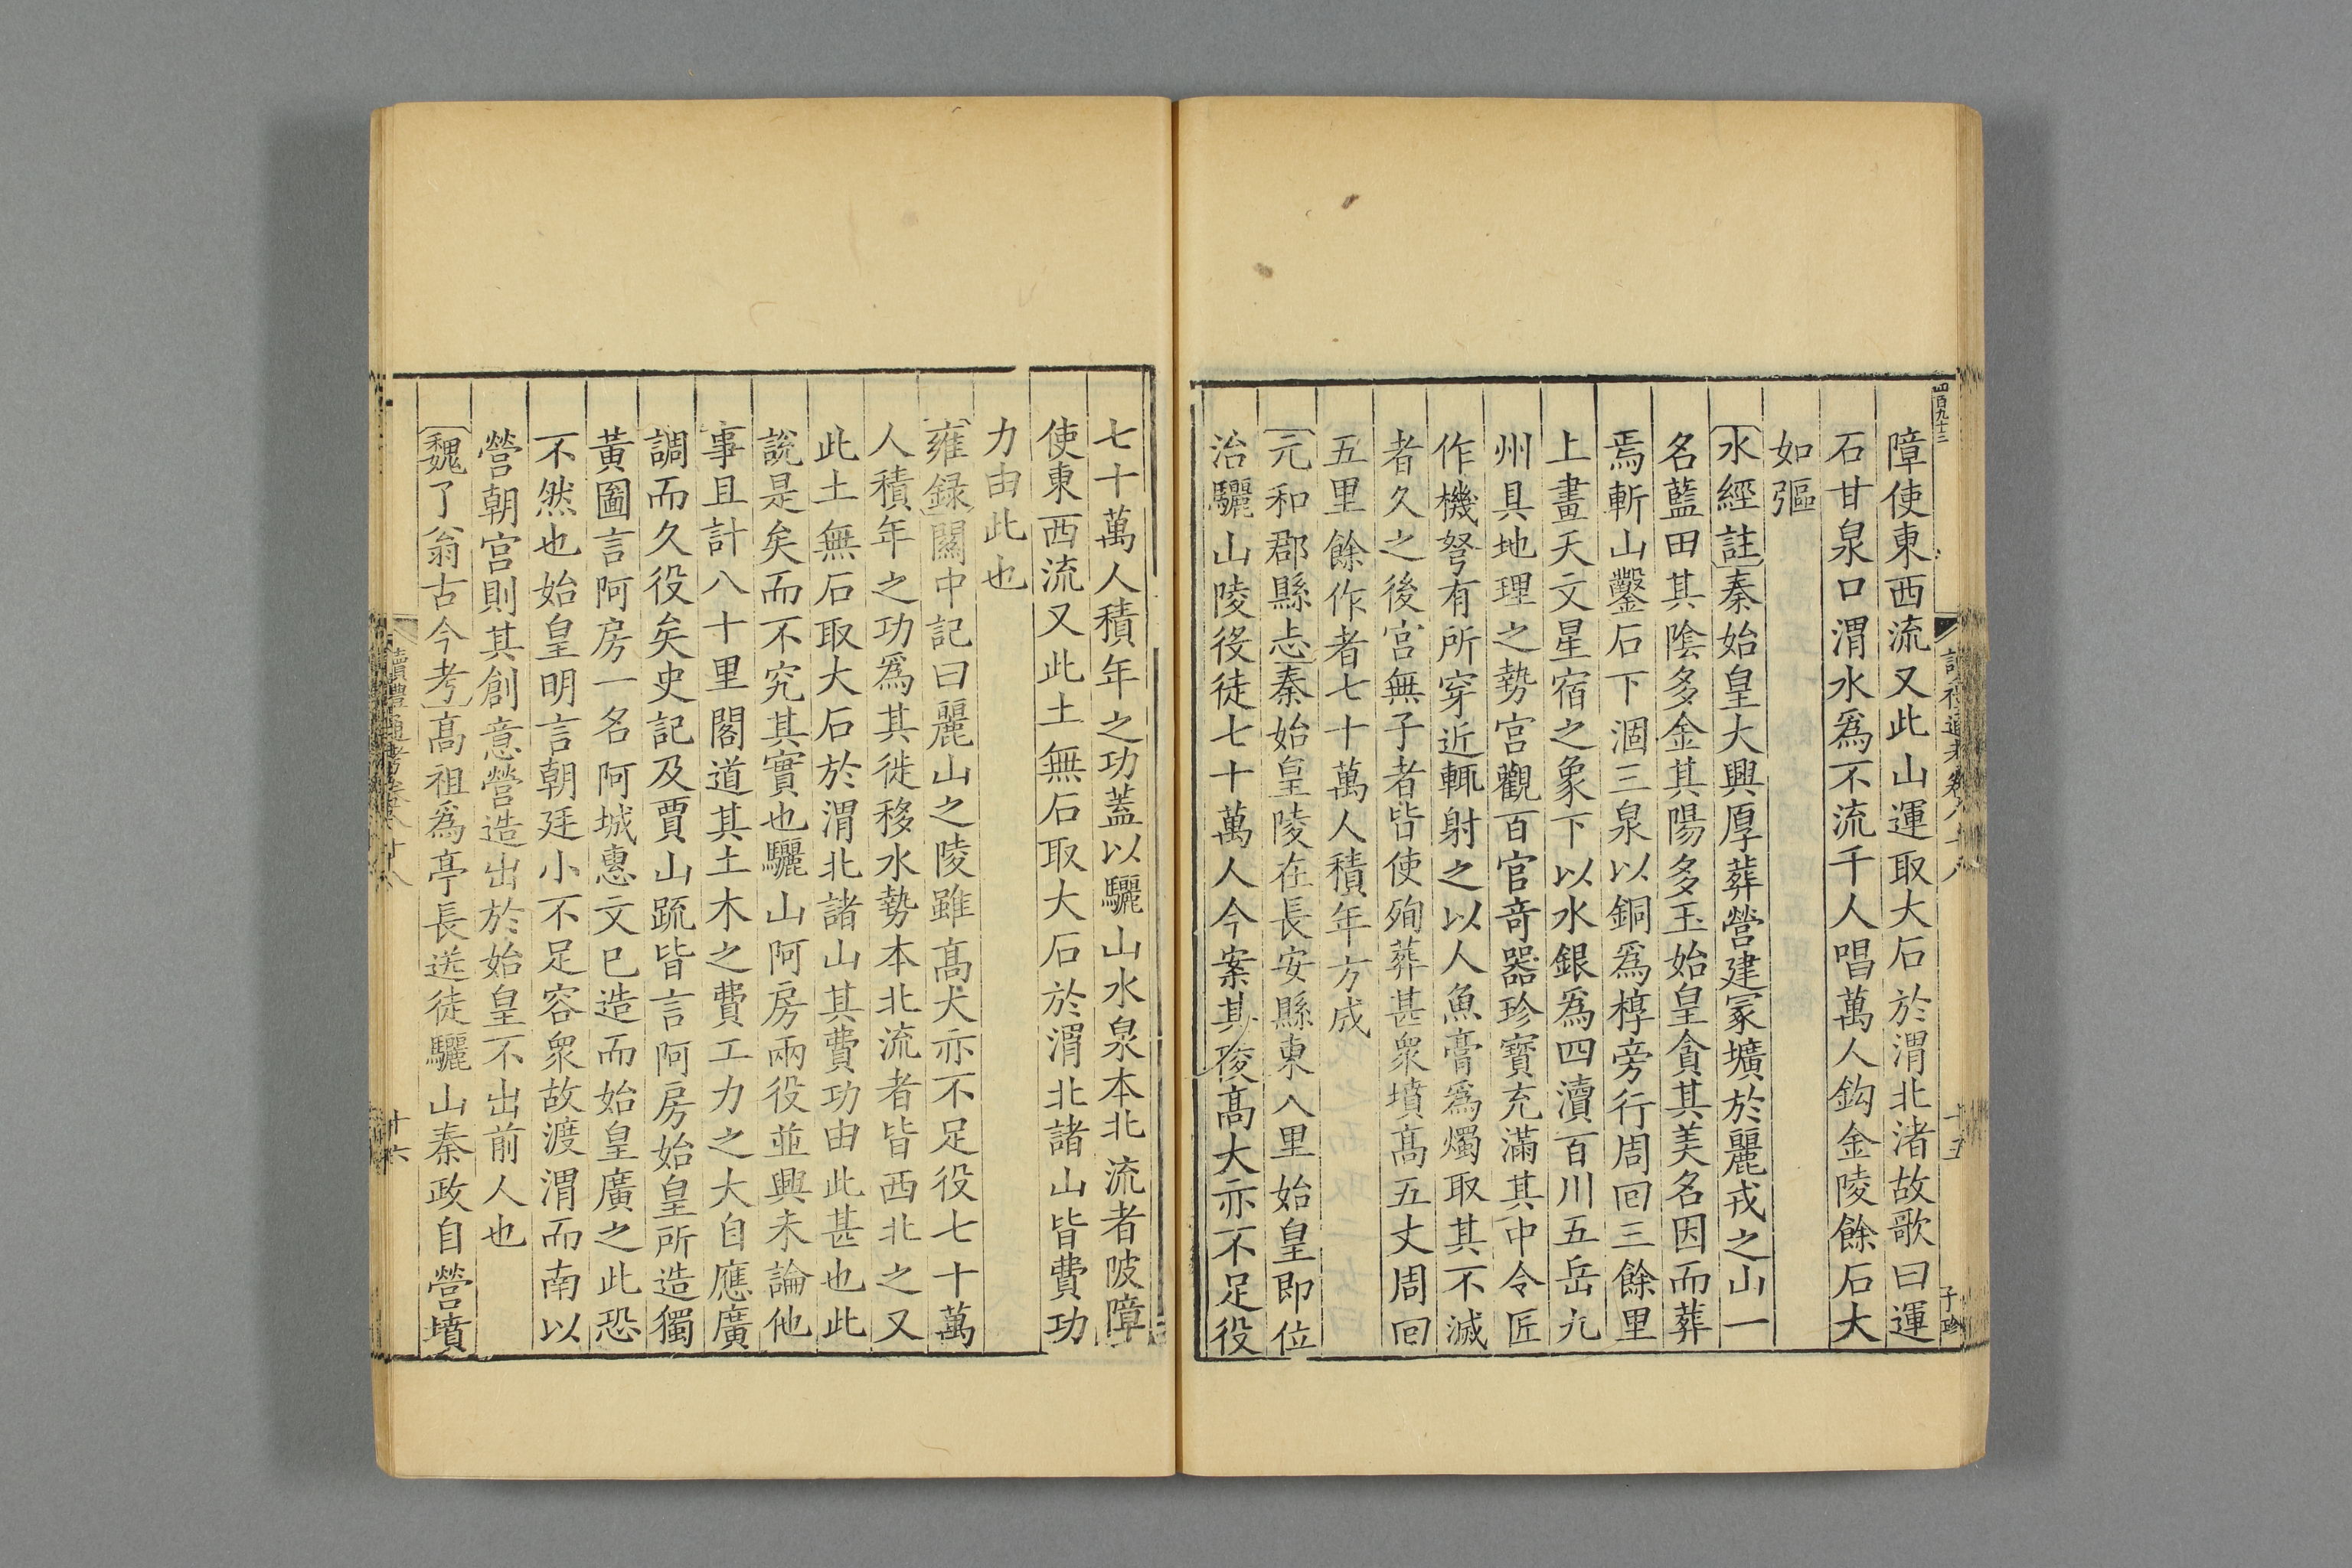 四百九十三
障使東西流又此山運取大石於渭北渚故歌曰運
石甘泉口渭水爲不流千人唱萬人鈎金陵餘石大
如彄
水經註秦始皇大興厚葬營建冢壙於麗戎之山一
名藍田其陰多金其陽多玉始皇貪其美名因而葬
焉斬山鑿石下涸三泉以銅爲椁旁行周囘三餘里
上畫天文星宿之象下以水銀爲四瀆百川五岳九
州具地理之勢宮觀百官奇器珍寶充滿其中令匠
作機弩有所穿近輒射之以人魚膏爲燭取其不滅
者久之後宮無子者皆使殉葬甚衆墳髙五丈周囘
五里餘作者七十萬人積年方成
元和郡縣志秦始皇陵在長安縣東八里始皇即位
治驪山陵役徒七十萬人今案其陵髙大亦不足役
七十萬人積年之功蓋以驪山水泉本北流者陂障
使東西流又此土無石取大石於渭北諸山皆費功
力由此也
雍録關中記曰麗山之陵雖髙大亦不足役七十萬
人積年之功爲其徙移水勢本北流者皆西北之又
此土無石取大石於渭北諸山其費功由此甚也此
說是矣而不究其實也驪山阿房兩役並興未論他
事且計八十里閣道其土木之費工力之大自應廣
調而久役矣史記及賈山疏皆言阿房始皇所造獨
黃圖言阿房一名阿城惠文已造而始皇廣之此恐
不然也始皇明言朝廷小不足容衆故渡渭而南以
營朝宮則其創意營造出於始皇不出前人也
魏了翁古今考髙祖爲亭長送徒驪山秦政自營墳
讀禮通考卷八十八
十六